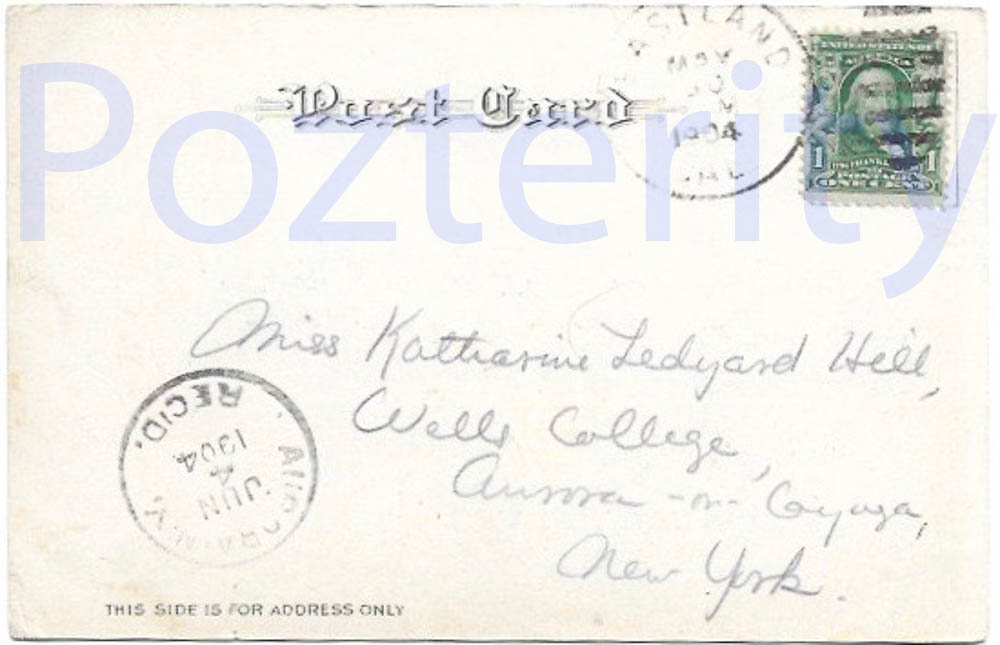 Post Card
ASTLAND
MAY
1904
UNITED STATES OF
1 FRANKLIN 1
POSTAGE
ONE CENT
Pozterity
Miss Katharine Ledyard Hill,
Wells College,
Aurora-on-Cayuga,
New York.
AURORA, N.Y.
JUN
4
1904
REC'D.
THIS SIDE IS FOR ADDRESS ONLY